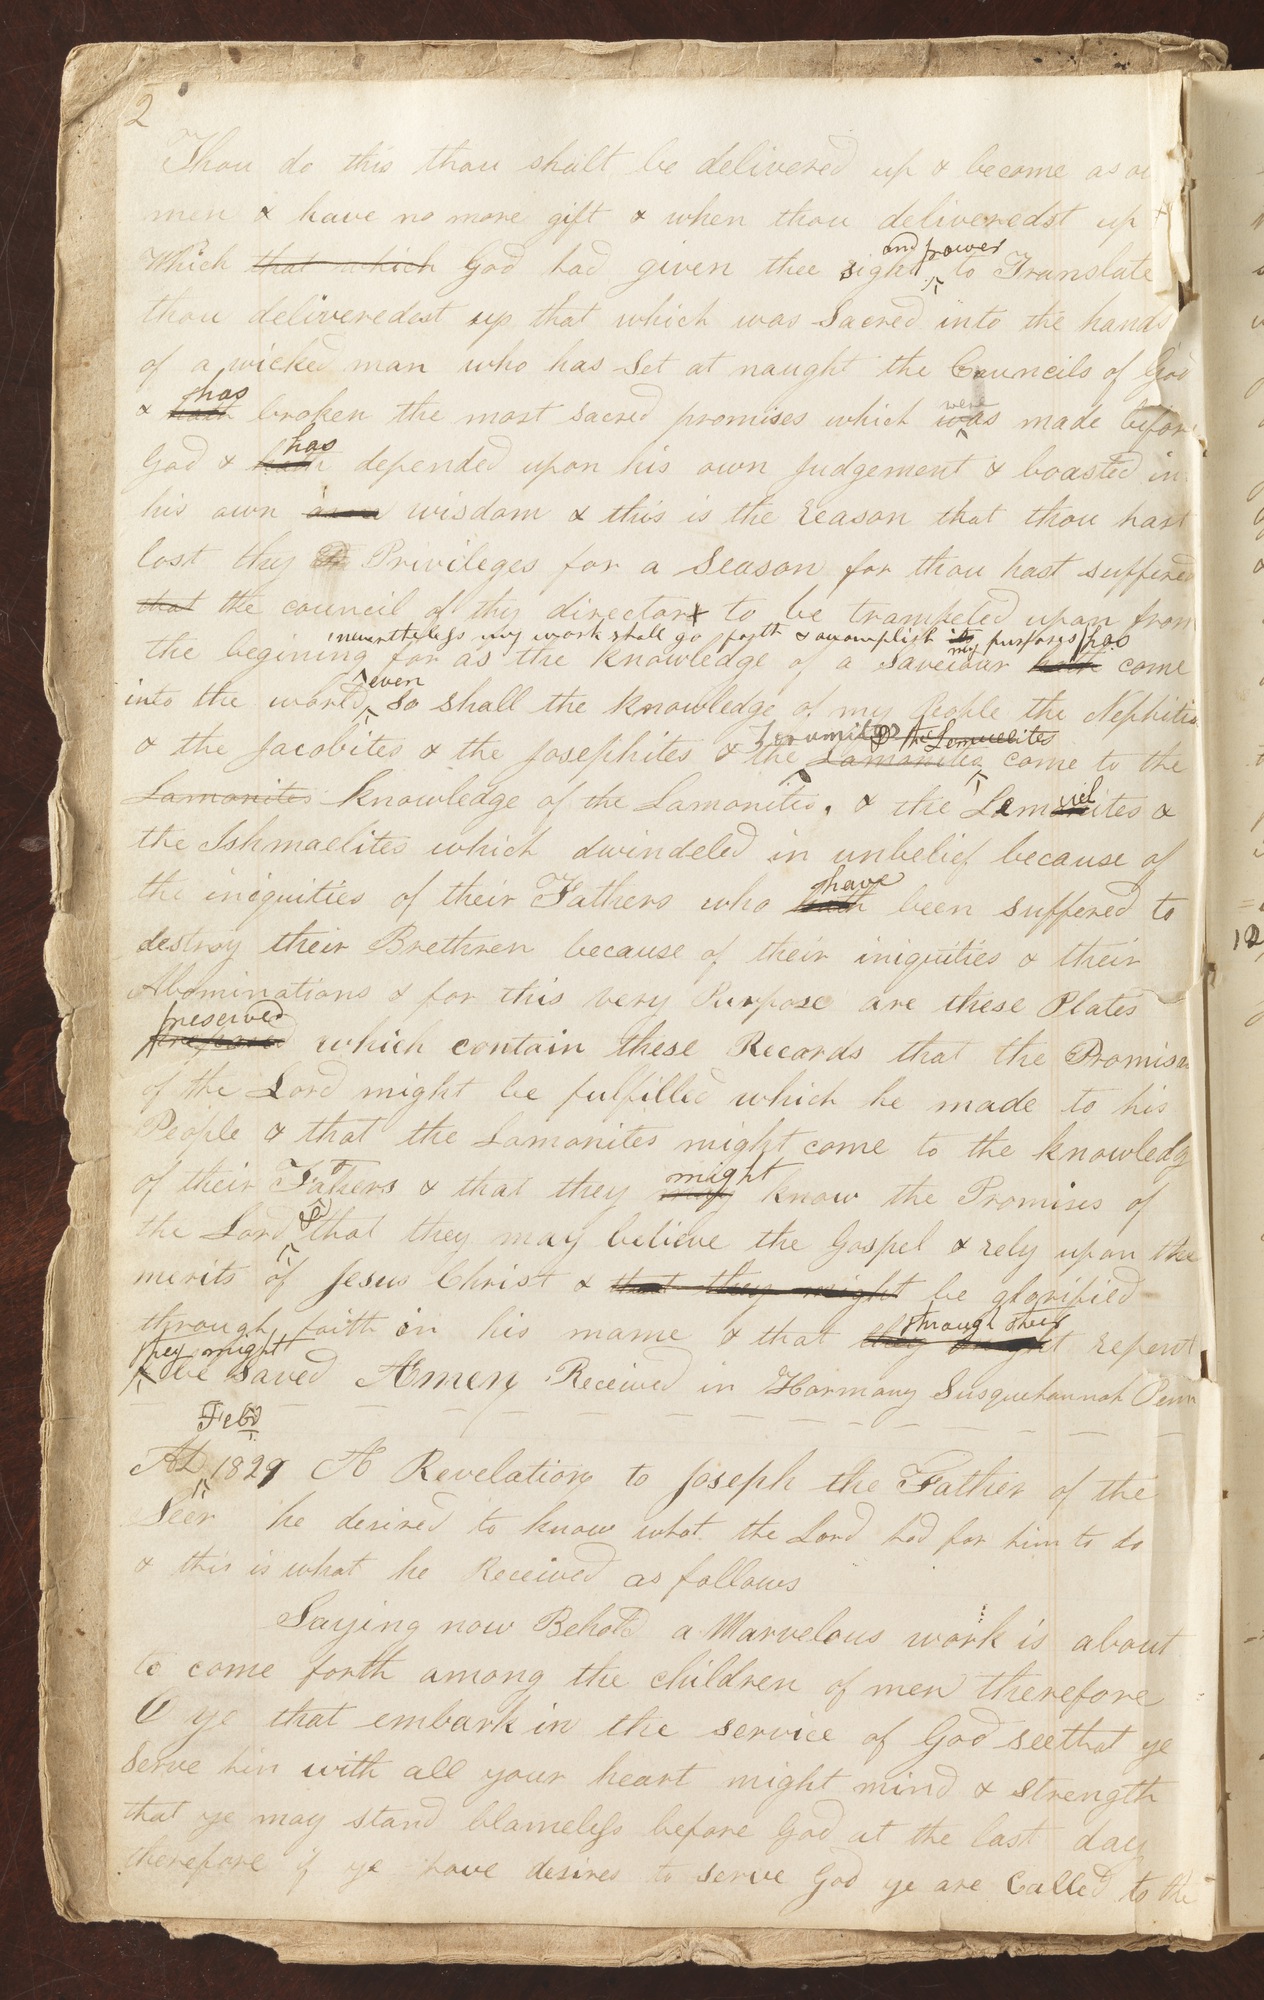 2
Thou do this thou shalt be delivered up & become as
men & have no more gift & when thou deliveredst up
and power
Which that which God had given thee sight to Translate
thou deliveredest up that which was Sacred into the hands
of a wicked man who has Set at naught the Councils of God
has
were
& hath broken the most sacred promises which was made before
has
God & hath depended upon his own Judgement & boasted in
his own own wisdom & this is the reason that thou hast
lost thy Privileges for a Season for thou hast suffered
that the council of thy director to be trampeled upon from
nevertheless my work shall go forth & accomplish its my purposes has
the begining for as the knowledge of a saveiour hath come
even
into the world so shall the knowledge of my People the Nephites
Zoramites & the Lemuelites
& the Jacobites & the Josephites & the Lamanites come to the
uel
Lamanites knowledge of the Lamanites, & the Lemanites &
the Ishmaelites which dwindeled in unbelief because of
have
the iniquities of their Fathers who hath been suffered to
destroy their Brethren because of their iniquities & their
Abominations & for this very Purpose are these Plates
preserved
prepared which contain these Records that the Promises
of the Lord might be fulfilled which he made to his
People & that the Lamanites might come to the knowledg
might
of their Fathers & that they may know the Promises of
&
the Lord that they may believe the Gospel & rely upon the
merits of Jesus Christ & that they might be glorified
through their
through faith in his name & that they might repent
they might
be Saved Amen Received in Harmony Susquehannah Penn
Feb
AD 1829 A Revelation to Joseph the Father of the
Seer he desired to know what the Lord had for him to do
& this is what he Received as follows
Saying now Behold a Marvelous work is about
to come forth among the children of men therefore
O ye that embark in the service of God see that ye
serve him with all your heart might mind & strength
that ye may stand blameless before God at the last day
therefore if ye have desires to serve God ye are Called to the
12